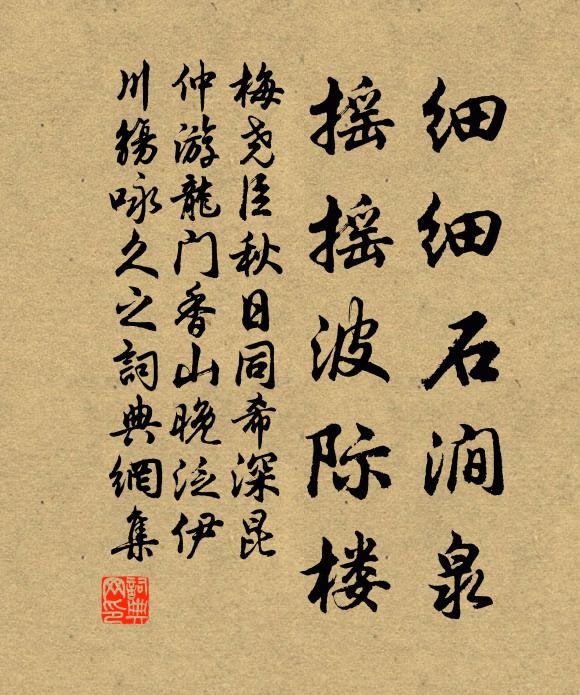 细细石涧泉
摇摇波际楼
梅尧臣秋日同希深昆
仲游龍门香山晚泛伊
川觞咏久之詞典網集
詞典
网印